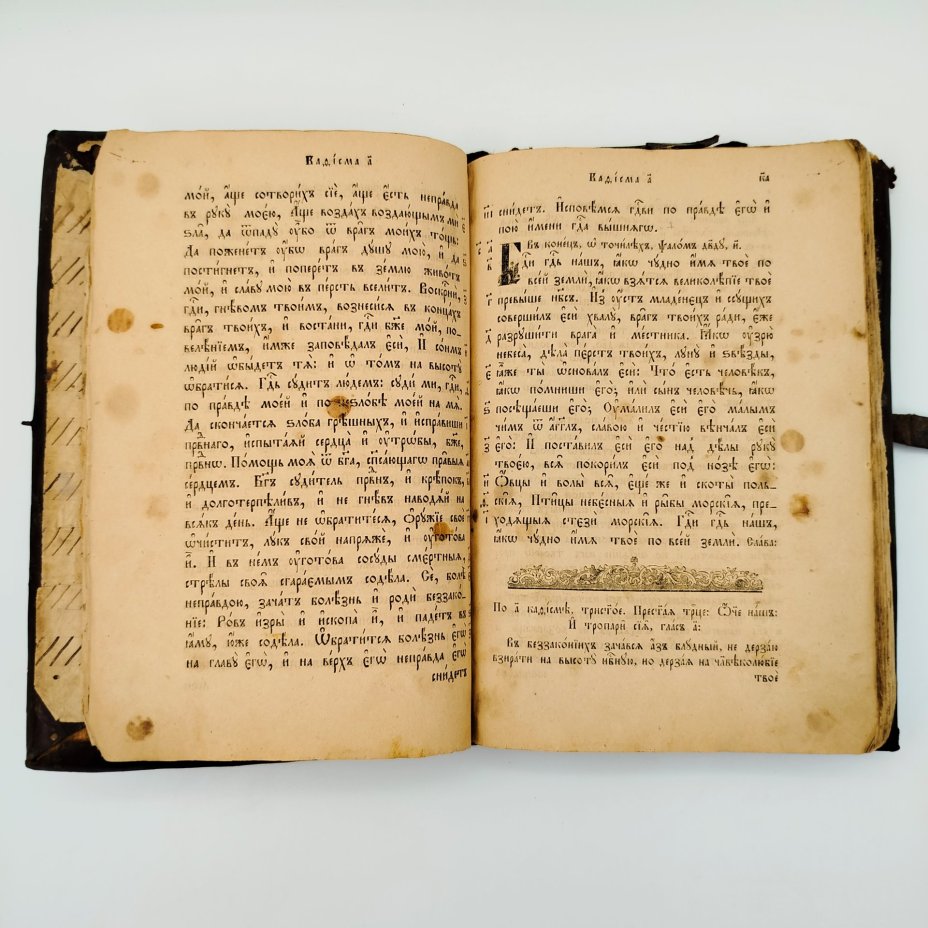 Каѳі́сма а҃
мо́й, а҆́ще сотвори́хъ сїѐ, а҆́ще є҆́сть непра́вда
въ рукꙋ̀ мое́ю, А҆́ще возда́хъ воздаю́щымъ мѝ
ѕла̀, да ѿпадꙋ̀ оу҆́бо ѿ вра̑гъ мои́хъ то́щь:
Да пожене́тъ оу҆́бѡ вра́гъ дꙋ́шꙋ мою̀, и҆ да
пости́гнетъ, и҆ попере́тъ въ зе́млю живо́тъ
мо́й, и҆ сла́вꙋ мою̀ въ пе́рсть всели́тъ. Воскрⷭ҇нѝ,
гдⷭ҇и, гнѣ́вомъ твои́мъ, вознеси́сѧ въ конца́хъ
вра̑гъ твои́хъ, и҆ воста́ни, гдⷭ҇и бж҃е мо́й, по_
велѣ́нїемъ, и҆́мже заповѣ́далъ є҆сѝ, И҆ со́нмъ
люде́й ѡ҆бы́детъ тѧ̀: и҆ ѡ҆ то́мъ на высотꙋ̀
ѡ҆брати́сѧ. Гдⷭ҇ь сꙋ́дитъ лю́демъ: сꙋди́ ми, гдⷭ҇и,
по пра́вдѣ мое́й и҆ по ѕло́бѣ мое́й на мѧ̀.
Да сконча́етсѧ ѕло́ба грѣ́шныхъ, и҆ и҆спра́виши
првⷣнаго, и҆спыта́ѧй сердца̀ и҆ оу҆трѡ́бы, бж҃е,
првⷣнѡ. По́мощь моѧ̀ ѿ бг҃а, сп҃са́ющагѡ пра̑выѧ
се́рдцемъ. Бг҃ъ сꙋди́тель првⷣнъ, и҆ крѣ́покъ,
и҆ долготерпѣли́въ, и҆ не гнѣ́въ наводѧ́й на
всѧ́къ де́нь. А҆́ще не ѡ҆брати́тесѧ, Ѻ҆рꙋ́жїе своѐ
ѡ҆чи́ститъ, лꙋ́къ сво́й напрѧжѐ, и҆ оу҆гото́ва
и҆̀. И҆ въ не́мъ оу҆гото́ва сосꙋ́ды сме́ртныѧ,
стрѣ́лы своѧ̑ сгара́емымъ содѣ́ла. Се, болѣ̀
непра́вдою, зача́тъ болѣ́знь и҆ родѝ беззако́_
нїе: Ро́въ и҆зры̀ и҆ и҆скопа̀ и҆̀, и҆ паде́тъ въ
ꙗ҆́мꙋ, ю҆́же содѣ́ла. Ѡ҆брати́тсѧ болѣ́знь є҆гѡ̀
на главꙋ̀ є҆гѡ̀, и҆ на ве́рхъ є҆гѡ̀ непра́вда є҆гѡ̀
сни́детъ
Каѳі́сма а҃ н҃а
сни́детъ. И҆сповѣ́мсѧ гдⷭ҇ви по пра́вдѣ є҆гѡ̀ и҆
пою̀ и҆́мени гдⷭ҇а вы́шнѧгѡ.
Въ коне́цъ, ѡ҆ точи́лѣхъ, ѱало́мъ дв҃дꙋ, и҃.
Гдⷭ҇и гдⷭ҇ь на́шъ, ꙗ҆́кѡ чꙋ́дно и҆́мѧ твоѐ по
все́й землѝ, ꙗ҆́кѡ взѧ́тсѧ великолѣ́пїе твоѐ
превы́ше нб҃съ. И҆з̾ оу҆́стъ младе́нєцъ и҆ ссꙋ́щихъ
соверши́лъ є҆сѝ хвалꙋ̀, вра̑гъ твои́хъ ра́ди, є҆́же
разрꙋши́ти врага̀ и҆ ме́стника. Ꙗ҆́кѡ оу҆зрю̀
небеса̀, дѣла̀ пє́рстъ твои́хъ, лꙋнꙋ̀ и҆ ѕвѣ́зды,
ꙗ҆̀же ты̀ ѡ҆снова́лъ є҆сѝ: Что̀ є҆́сть человѣ́къ,
ꙗ҆́кѡ по́мниши є҆го̀; и҆лѝ сы́нъ человѣ́чь, ꙗ҆́кѡ
посѣща́еши є҆го̀; Оу҆ма́лилъ є҆сѝ є҆го̀ ма́лымъ
чи́мъ ѿ а҆́гг҃лъ, сла́вою и҆ че́стїю вѣнча́лъ є҆сѝ
є҆го̀: И҆ поста́вилъ є҆сѝ є҆го̀ над̾ дѣ́лы рꙋкꙋ̀
твое́ю, всѧ̑ покори́лъ є҆сѝ под̾ но́зѣ є҆гѡ̀:
Ѻ҆́вцы и҆ волы̀ всѧ̑, є҆ще́ же и҆ скоты̀ поль_
скі̑ѧ, Пти̑цы небє́сныѧ и҆ ры̑бы морскі̑ѧ, пре_
ходѧ́щыѧ стєзѝ морскі̑ѧ. Гдⷭ҇и гдⷭ҇ь на́шъ,
ꙗ҆́кѡ чꙋ́дно и҆́мѧ твоѐ по все́й землѝ. Сла́ва:
По а҃ каѳі́смѣ, трист҃о́е. Прест҃а́ѧ трⷪ҇це: Ѻ҆́ч҃е на́шъ:
И҆ тропарѝ сїѧ̑, гла́съ а҃:
Въ беззако́нїихъ зача́всѧ а҆́зъ блꙋ́дный, не дерза́ю
взира́ти на высотꙋ̀ нбⷭ҇нꙋю, но дерза́ѧ на чл҃вѣколю́бїе
твоѐ